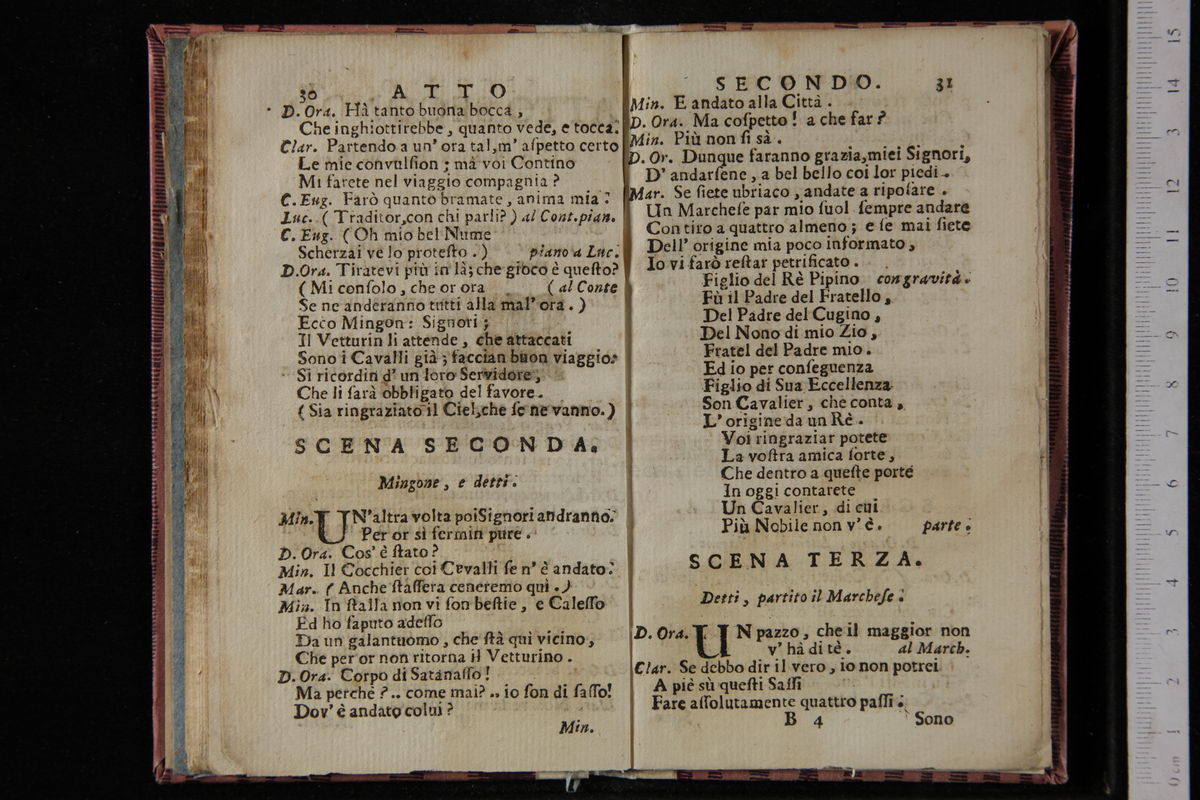 30 ATTO
D. Ora. Hà tanto buona bocca,
Che inghiottirebbe, quanto vede, e tocca.
Clar. Partendo a un' ora tal, m' aſpetto certo
Le mie convulſion; mà voi Contino
Mi farete nel viaggio compagnia?
C. Eug. Farò quanto bramate, anima mia:
Luc. (Traditor, con chi parli?) al Cont. pian.
C. Eug. (Oh mio bel Nume
Scherzai ve lo proteſto.) piano a Luc.
D. Ora. Tiratevi più in là; che gioco è queſto?
(Mi conſolo, che or ora (al Conte
Se ne anderanno tutti alla mal' ora.)
Ecco Mingon: Signori;
Il Vetturin li attende, che attaccati
Sono i Cavalli già; faccian buon viaggio:
Si ricordin d' un loro Servidore,
Che li ſarà obbligato del favore.
(Sia ringraziato il Ciel, che ſe ne vanno.)
SCENA SECONDA.
Mingone, e detti.
Min. UN'altra volta poi Signori andranno.
Per or sì fermin pure.
D. Ora. Cos' è ſtato?
Min. Il Cocchier coi Cavalli ſe n' è andato.
Mar. (Anche ſtaſſera ceneremo qui.)
Min. In ſtalla non vi ſon beſtie, e Caleſſo
Ed ho ſaputo adeſſo
Da un galantuomo, che ſtà qui vicino,
Che per or non ritorna il Vetturino.
D. Ora. Corpo di Satanaſſo!
Ma perchè?.. come mai?.. io ſon di ſaſſo!
Dov' è andato colui?
Min.
SECONDO. 31
Min. E andato alla Città.
D. Ora. Ma coſpetto! a che far?
Min. Più non ſi sà.
D. Or. Dunque faranno grazia, miei Signori,
D' andarſene, a bel bello coi lor piedi.
Mar. Se ſiete ubriaco, andate a ripoſare.
Un Marcheſe par mio ſuol ſempre andare
Con tiro a quattro almeno; e ſe mai ſiete
Dell' origine mia poco informato,
Io vi farò reſtar petrificato.
Figlio del Rè Pipino con gravità.
Fù il Padre del Fratello,
Del Padre del Cugino,
Del Nono di mio Zio,
Fratel del Padre mio.
Ed io per conſeguenza
Figlio di Sua Eccellenza
Son Cavalier, che conta,
L' origine da un Rè.
Voi ringraziar potete
La voſtra amica ſorte,
Che dentro a queſte porte
In oggi contarete
Un Cavalier, di cui
Più Nobile non v' è. parte.
SCENA TERZA.
Detti, partito il Marcheſe.
D. Ora. UN pazzo, che il maggior non
v' hà di tè. al March.
Clar. Se debbo dir il vero, io non potrei
A piè sù queſti Saſſi
Fare aſſolutamente quattro paſſi.
B 4 Sono
15
14
13
12
11
10
9
8
7
6
5
4
3
2
1
0 cm